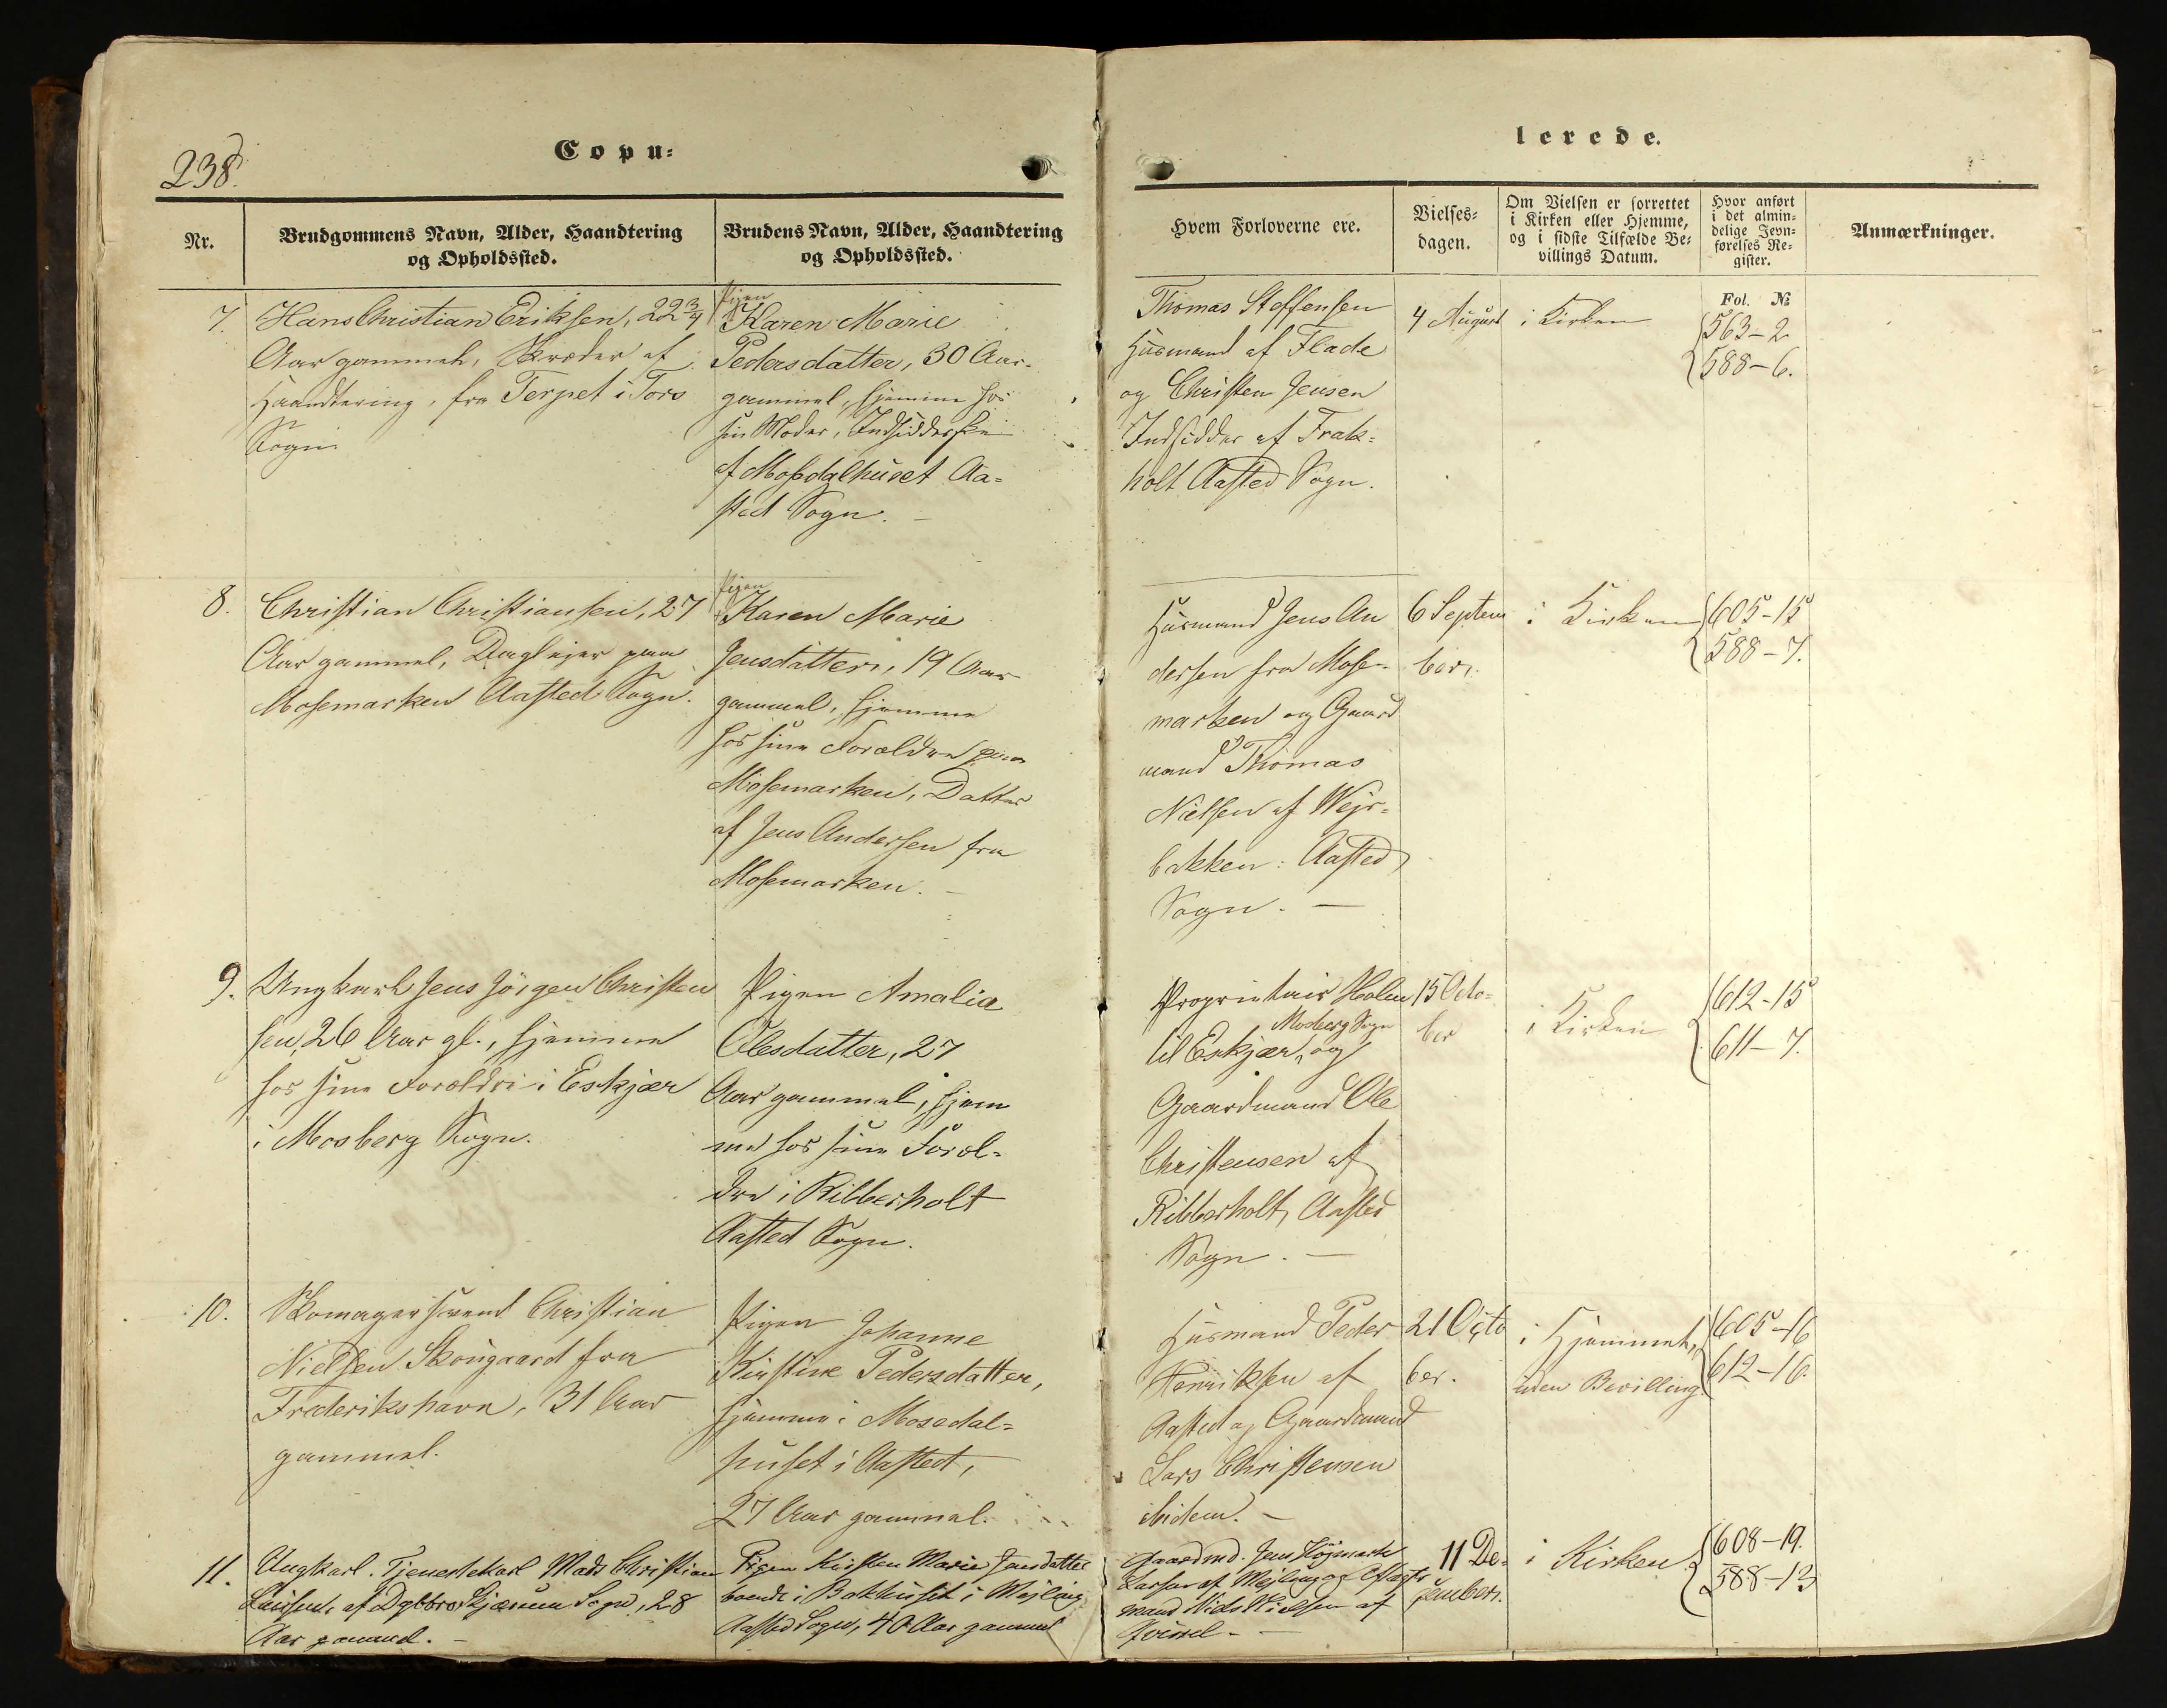 238.
Copu=
Nr.
Brudgommens Navn, Alder, Haandtering
og Opholdssted.
Brudens Navn, Alder, Haandtering
og Opholdssted.
7.
Hans Christian Eriksen, 22 3/4
Aar gammel, Skræder af
Haandtering, fra Terpet i Tors
Sogn.
Pigen
Karen Marie
Pedersdatter, 30 Aar
gammel, hjemme hos
sin Moder, Indsidderske
af Mosdalhuset Aa=
sted Sogn. –
8.
Christian Christiansen, 27
Aar gammel, Daglejer paa
Mosemarken Aasted Sogn.
Pigen
Karen Marie
Jensdatter, 19 Aar
gammel, hjemme
hos sine Forældre paa
Mosemarken, Datter
af Jens Andersen fra
Mosemarken. –
9.
Ungkarl Jens Jörgen Christen
sen, 26 Aar gl., hjemme
hos sine Forældre i Eskjær
i Mosberg Sogn.
Pigen Amalia
Olesdatter, 27
Aar gammel, hjem
me hos sine Foræl=
dre i Ribberholt
Aasted Sogn.
10.
Skomagersvend Christian
Nielsen Skougaard fra
Frederikshavn, 31 Aar
gammel.
Pigen Johanne
Kirstine Pedersdatter,
hjemme i Mosedal=
huset i Aasted,
27 Aar gammel.
11.
Ungkarl. Tjenestekarl Mads Christian
af Sogn, 28
Aar gammel. –
Pigen Kirsten Marie Jensdatter
boende i Bakhuset i Mejling
Aasted Sogn, 40 Aar gammel
lerede.
Hvem Forloverne ere.
Vielses=
dagen.
Om Vielsen er forrettet
i Kirken eller Hjemme,
og i sidste Tilfælde Be=
villings Datum.
Hvor anført
i det almin=
delige Jevn=
førelses Re=
gister.
Anmærkninger.
Fol. No
Thomas Steffensen
Husmand af Flade
og Christen Jensen
Indsidder af Frak=
holt Aasted Sogn.
4 August
i Kirken
563–2
588–6.
Husmand Jens An
dersen fra Mose=
marken og Gaard
mand Thomas
Nielsen af Wejr=
bakken: Aasted
Sogn. –
6 Septem
ber.
i Kirken
605–15
588–7.
Proprietair Holm
Mosberg Sogn
til Eskjær, og
Gaardmand Ole
Christensen af
Ribberholt, Aasted
Sogn. –
15 Octo=
ber
i Kirken
612–15
611–7.
Husmand Peder
Henriksen af
Aasted og Gaardmand
Lars Christensen
ibidem. –
21 Octo
ber.
i Hjemmet,
uden Bevilling
605–16
612–16.
Gaardmd. Jens Höjmark
Larsen af Mejling og Aftægts
mand Niels Nielsen af
11 De=
cember.
i Kirken
608–19.
588–13